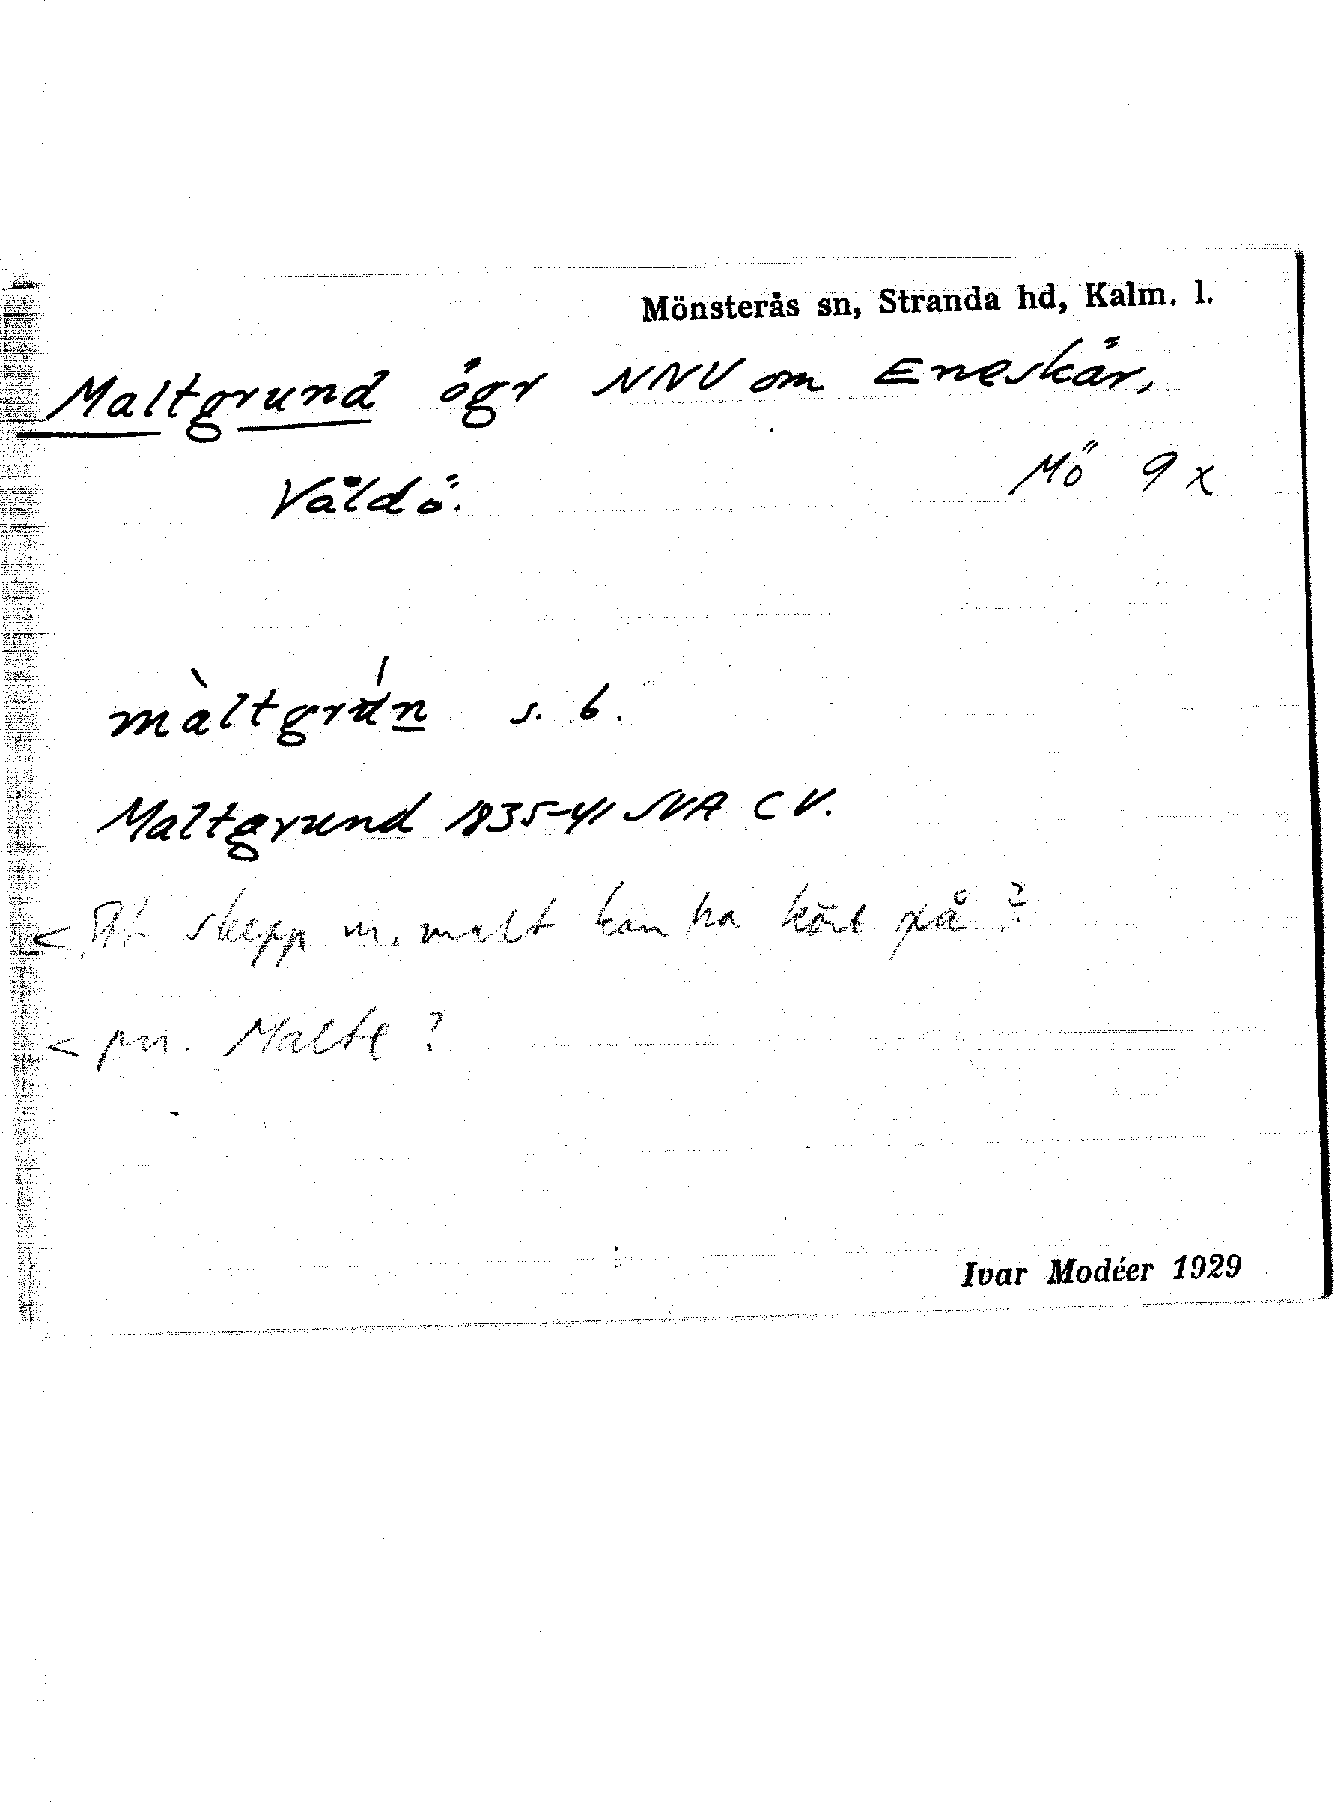 Mönsterås sn, Stranda hd, Kalm. l.
Maltgrund ögr NNV om Eneskär,
Väldö. Mö 9 x
màltgrún s. b.
Maltgrund 1835-41 SVA C V.
< Ett skepp m. malt kan ha kört på?
< pn. Malte?
Ivar Modéer 1929